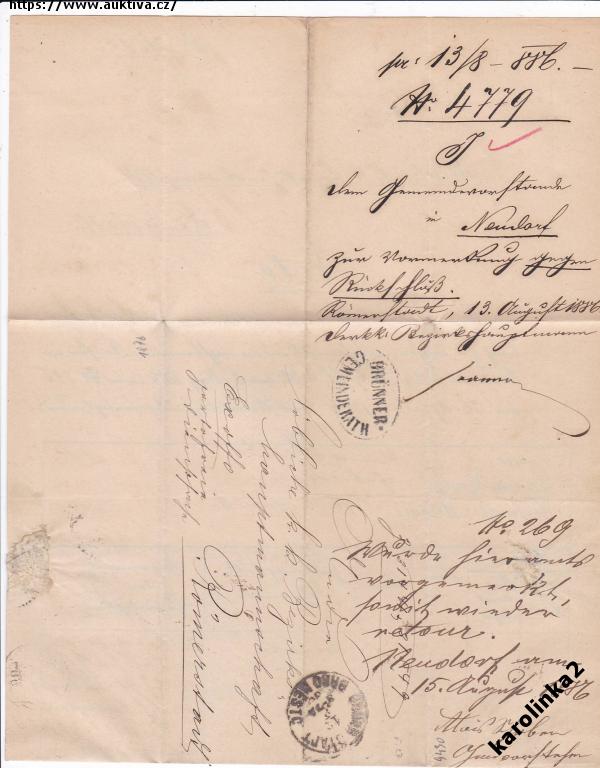 https://www.auktiva.cz/
pr: 13/8 - 886. -
No. 4779
dem Gemeindevorstande
in Neudorf
zur Vormerkung gegen
Rückschluß.
Römerstadt, 13. August 1886
Der k.k. Bezirkshauptmann
BRÜNNER
GEMEINDERATH
Exoffo
portofreie
Dienstsache
Löbliche k. k. Bezirks
hauptmannschaft
Römerstadt
No. 269
Wurde hieramts
vorgemerkt,
somit wieder
retour.
Neudorf am
15. August 886
Alois
Gemeindevorsteher
BRÜNN STADT
BRNO MĚSTO
9430
karolinka2